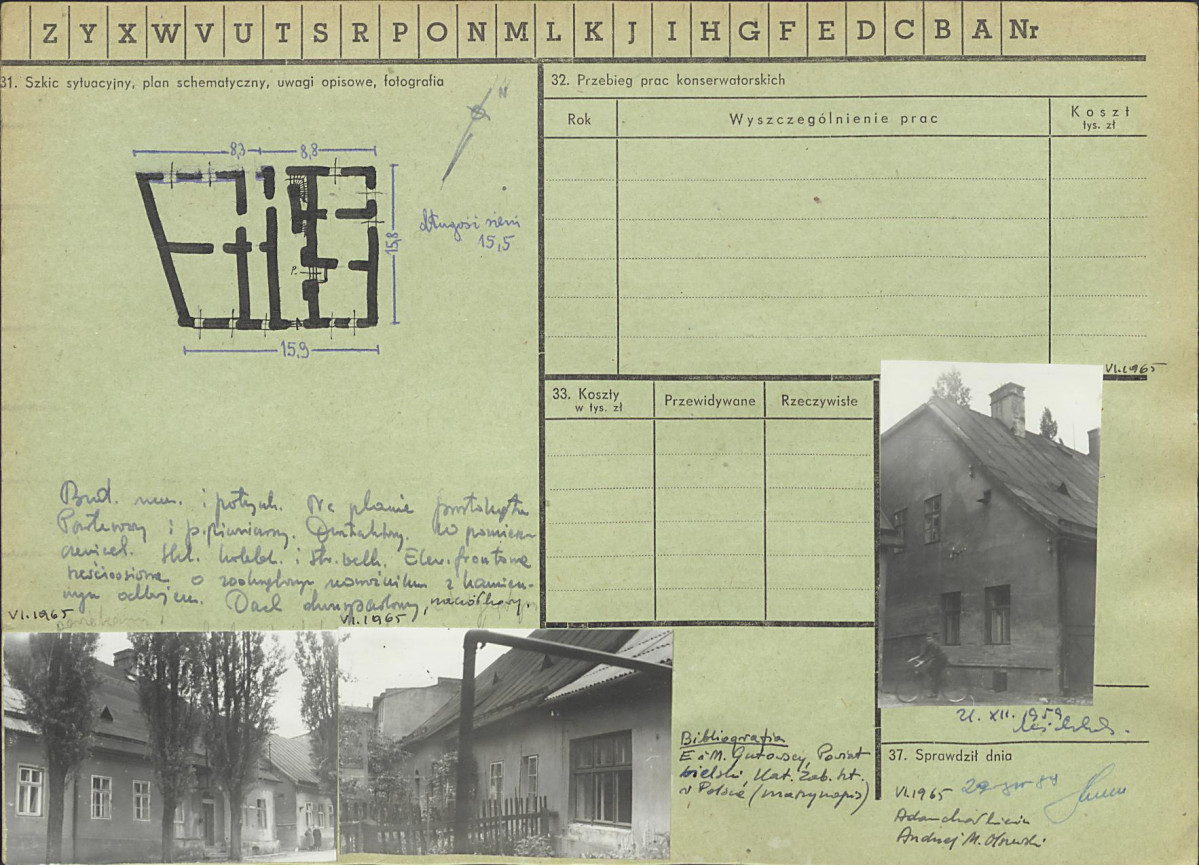 Z Y X W V U T S R P O N M L K J I H G F E D C B A Nr
31. Szkic sytuacyjny, plan schematyczny, uwagi opisowe, fotografia
N
8,3 8,8
długość sieni
15,5
15,8
P.
15,9
Bud. mur. i potynk. Na planie prostokąta
Parterowy i p.piwniczony. Dwutraktowy. W pomieszcz.
Elew. frontowa
o zaokrąglonym narożniku z kamien-
nym odbojem. Dach dwuspadowy,
VI.1965
VI.1965
32. Przebieg prac konserwatorskich
Rok Wyszczególnienie prac Koszt
tys. zł
VI.1965
33. Koszty
w tys. zł
Przewidywane Rzeczywiste
Bibliografia
E i M. Gutowscy, Powiat
bielski, Kat. Zab. Szt.
w Polsce (maszynopis)
21. XII. 1959
37. Sprawdził dnia
VI.1965
Andrzej M. Olszewski